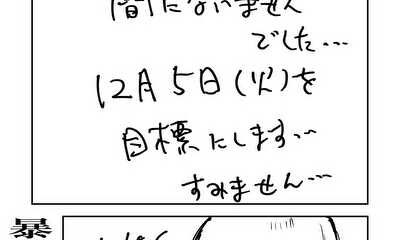 間にあいません
でした…
12月5日(火)を
目標にします…
すみません…
暴